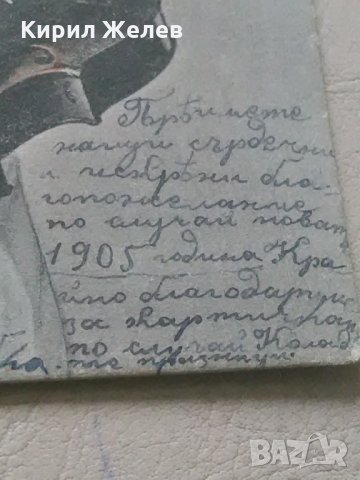 Кирил Желев
Приемете
нашги сърдечни
и искрѣни бла-
гопожелание
по случаи новата
1905 година Кра
йно благодарим
за картичката
по случай Колад
ните празници.
BAZAR